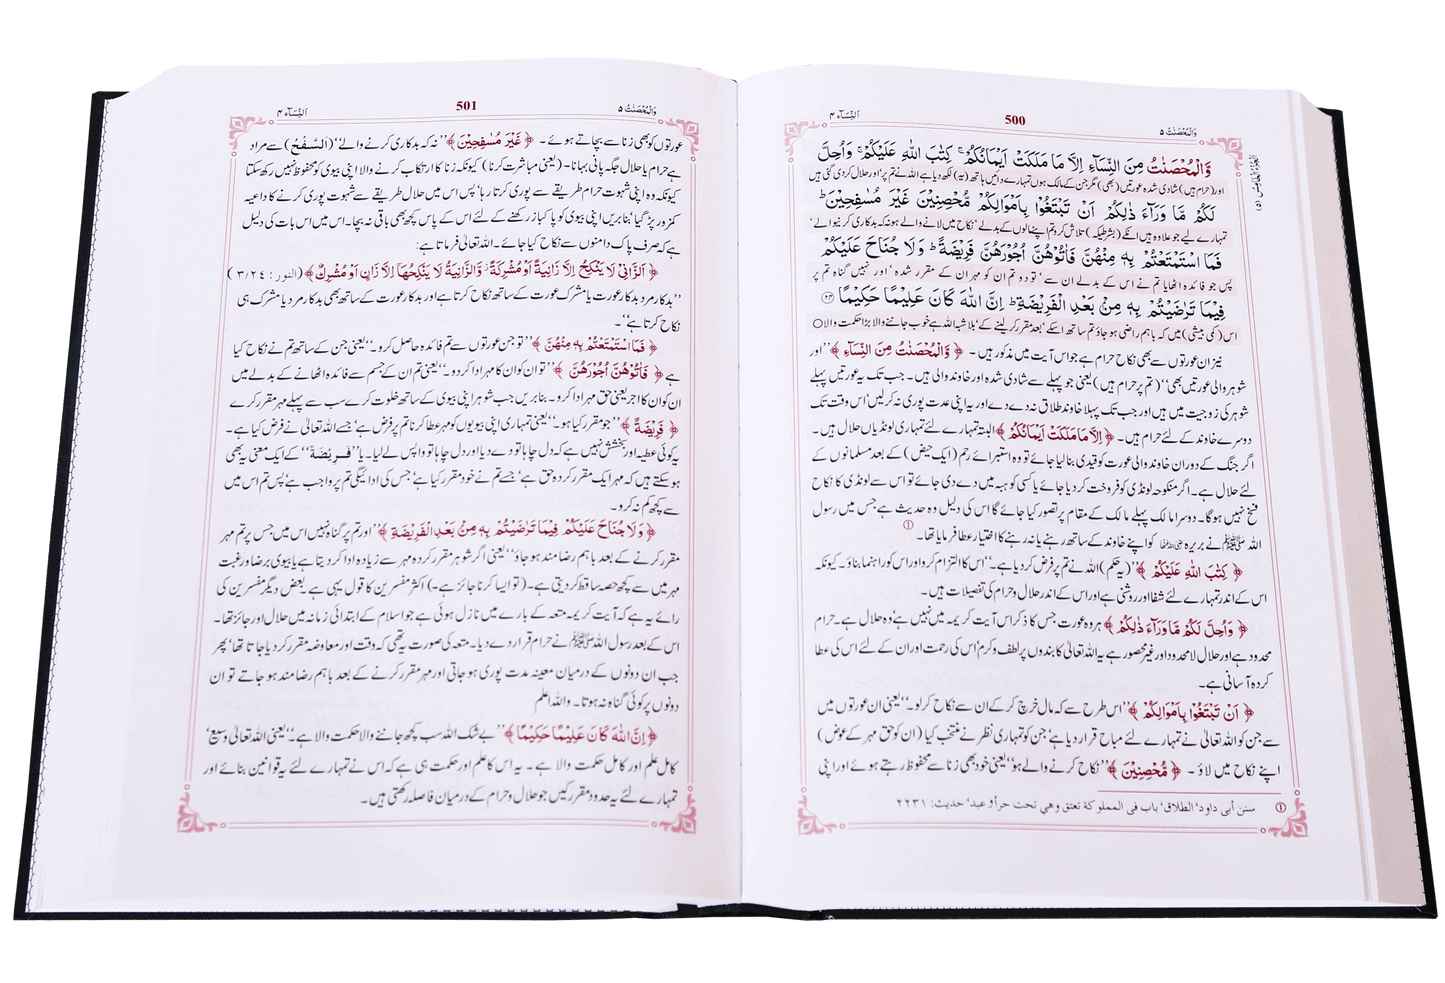 اَلنِّسَآء ۴
500
وَالْمُحْصَنٰتُ ۵
وَّالْمُحْصَنٰتُ مِنَ النِّسَآءِ اِلَّا مَا مَلَكَتْ اَيْمَانُكُمْ ۚ كِتٰبَ اللّٰهِ عَلَيْكُمْ ۚ وَاُحِلَّ
اور (حرام ہیں) شادی شدہ عورتیں (بھی) مگر جن کے مالک ہوں تمہارے دائیں ہاتھ (یہ) لکھ دیا ہے اللہ نے تم پر' اور حلال کردی گئی ہیں
لَكُمْ مَّا وَرَآءَ ذٰلِكُمْ اَنْ تَبْتَغُوْا بِاَمْوَالِكُمْ مُّحْصِنِيْنَ غَيْرَ مُسٰفِحِيْنَ ؕ
تمہارے لیے جو علاوہ ہیں انکے (بشرطیکہ) تلاش کرو تم اپنے مالوں کے بدلے' نکاح میں لانے والے ہو نہ کہ بدکاری کرنیوالے'
فَمَا اسْتَمْتَعْتُمْ بِهٖ مِنْهُنَّ فَاٰتُوْهُنَّ اُجُوْرَهُنَّ فَرِيْضَةً ؕ وَلَا جُنَاحَ عَلَيْكُمْ
پس جو فائدہ اٹھایا تم نے اس کے بدلے ان سے' تو دو تم ان کو مہر ان کے مقرر شدہ' اور نہیں گناہ تم پر
فِيْمَا تَرٰضَيْتُمْ بِهٖ مِنْۢ بَعْدِ الْفَرِيْضَةِ ؕ اِنَّ اللّٰهَ كَانَ عَلِيْمًا حَكِيْمًا ۲۴
اس (کمی بیشی) میں کہ باہم راضی ہو جاؤ تم ساتھ اسکے' بعد مقرر کر لینے کے' بلاشبہ اللہ ہے خوب جاننے والا بڑا حکمت والا ○
نیز ان عورتوں سے بھی نکاح حرام ہے جو اس آیت میں مذکور ہیں۔ ﴿وَّالْمُحْصَنٰتُ مِنَ النِّسَآءِ﴾ ''اور
شوہر والی عورتیں بھی'' (تم پر حرام ہیں) یعنی جو پہلے سے شادی شدہ اور خاوند والی ہیں۔ جب تک یہ عورتیں پہلے
شوہر کی زوجیت میں ہیں اور جب تک پہلا خاوند طلاق نہ دے دے اور یہ اپنی عدت پوری نہ کر لیں' اس وقت تک
دوسرے خاوند کے لئے حرام ہیں۔ ﴿اِلَّا مَا مَلَكَتْ اَيْمَانُكُمْ﴾ البتہ تمہارے لئے تمہاری لونڈیاں حلال ہیں۔
اگر جنگ کے دوران خاوند والی عورت کو قیدی بنا لیا جائے تو وہ استبرائے رحم (ایک حیض) کے بعد مسلمانوں کے
لئے حلال ہے۔ اگر منکوحہ لونڈی کو فروخت کر دیا جائے یا کسی کو ہبہ میں دے دی جائے تو اس سے لونڈی کا نکاح
فسخ نہیں ہوگا۔ دوسرا مالک پہلے مالک کے مقام پر تصور کیا جائے گا اس کی دلیل وہ حدیث ہے جس میں رسول
اللہ ﷺ نے بریرہ کو اپنے خاوند کے ساتھ رہنے یا نہ رہنے کا اختیار عطا فرمایا تھا۔ ①
﴿كِتٰبَ اللّٰهِ عَلَيْكُمْ﴾ ''(یہ حکم) اللہ نے تم پر فرض کر دیا ہے۔'' اس کا التزام کرو اور اس کو راہنما بناؤ۔ کیونکہ
اس کے اندر تمہارے لئے شفا اور روشنی ہے اور اس کے اندر حلال و حرام کی تفصیلات ہیں۔
﴿وَاُحِلَّ لَكُمْ مَّا وَرَآءَ ذٰلِكُمْ﴾ ہر وہ عورت جس کا ذکر اس آیت کریمہ میں نہیں ہے' وہ حلال ہے۔ حرام
محدود ہے اور حلال لامحدود اور غیر محصور ہے یہ اللہ تعالیٰ کا بندوں پر لطف و کرم' اس کی رحمت اور ان کے لئے اس کی عطا
کردہ آسانی ہے۔
﴿اَنْ تَبْتَغُوْا بِاَمْوَالِكُمْ﴾ ''اس طرح سے کہ مال خرچ کر کے ان سے نکاح کر لو۔'' یعنی ان عورتوں میں
سے جن کو اللہ تعالیٰ نے تمہارے لئے مباح قرار دیا ہے' جن کو تمہاری نظر نے منتخب کیا (ان کو حق مہر کے عوض)
اپنے نکاح میں لاؤ۔ ﴿مُّحْصِنِيْنَ﴾ ''نکاح کرنے والے ہو'' یعنی خود بھی زنا سے محفوظ رہتے ہوئے اور اپنی
① سنن أبی داود' الطلاق' باب فی المملوکة تعتق وهي تحت حر أو عبد' حدیث: ۲۲۳۱
اَلنِّسَآء ۴
501
وَالْمُحْصَنٰتُ ۵
عورتوں کو بھی زنا سے بچاتے ہوئے۔ ﴿غَيْرَ مُسٰفِحِيْنَ﴾ ''نہ کہ بدکاری کرنے والے'' (اَلسَّفْحُ) سے مراد
ہے حرام یا حلال جگہ پانی بہانا۔ (یعنی مباشرت کرنا) کیونکہ زنا کا ارتکاب کرنے والا اپنی بیوی کو محفوظ نہیں رکھ سکتا
کیونکہ وہ اپنی شہوت حرام طریقے سے پوری کرتا رہا' پس اس میں حلال طریقے سے شہوت پوری کرنے کا داعیہ
کمزور پڑ گیا' بنا بریں اپنی بیوی کو پاکباز رکھنے کے لئے اس کے پاس کچھ بھی باقی نہ بچا۔ اس میں اس بات کی دلیل
ہے کہ صرف پاک دامنوں سے نکاح کیا جائے۔ اللہ تعالیٰ فرماتا ہے:
﴿اَلزَّانِيْ لَا يَنْكِحُ اِلَّا زَانِيَةً اَوْ مُشْرِكَةً ۡ وَّالزَّانِيَةُ لَا يَنْكِحُهَاۤ اِلَّا زَانٍ اَوْ مُشْرِكٌ﴾ (النور : ۳/۲۴)
''بدکار مرد بدکار عورت یا مشرک عورت کے ساتھ نکاح کرتا ہے اور بدکار عورت کے ساتھ بھی بدکار مرد یا مشرک ہی
نکاح کرتا ہے''۔
﴿فَمَا اسْتَمْتَعْتُمْ بِهٖ مِنْهُنَّ﴾ ''تو جن عورتوں سے تم فائدہ حاصل کرو۔'' یعنی جن کے ساتھ تم نے نکاح کیا
ہے ﴿فَاٰتُوْهُنَّ اُجُوْرَهُنَّ﴾ ''تو ان کو ان کا مہر ادا کر دو۔'' یعنی تم ان کے جسم سے فائدہ اٹھانے کے بدلے میں
ان کو ان کا اجر یعنی حق مہر ادا کرو۔ بنا بریں جب شوہر اپنی بیوی کے ساتھ خلوت کرے سب سے پہلے مہر مقرر کرے
﴿فَرِيْضَةً﴾ ''جو مقرر کیا ہو۔'' یعنی تمہاری اپنی بیویوں کو مہر عطا کرنا تم پر فرض ہے' جسے اللہ تعالیٰ نے فرض کیا ہے۔
یہ کوئی عطیہ اور بخشش نہیں ہے کہ دل چاہا تو دے دیا اور دل چاہا تو واپس لے لیا۔ یا ''فَرِيْضَةً'' کے ایک معنی یہ بھی
ہو سکتے ہیں کہ مہر ایک مقرر کردہ حق ہے' جسے تم نے خود مقرر کیا ہے' جس کی ادائیگی تم پر واجب ہے' پس تم اس میں
سے کچھ کم نہ کرو۔
﴿وَلَا جُنَاحَ عَلَيْكُمْ فِيْمَا تَرٰضَيْتُمْ بِهٖ مِنْۢ بَعْدِ الْفَرِيْضَةِ﴾ ''اور تم پر گناہ نہیں اس میں جس پر تم مہر
مقرر کرنے کے بعد باہم رضا مند ہو جاؤ'' یعنی اگر شوہر مقرر کردہ مہر سے زیادہ ادا کر دیتا ہے یا بیوی برضا و رغبت
مہر میں سے کچھ حصہ ساقط کر دیتی ہے۔ (تو ایسا کرنا جائز ہے۔) اکثر مفسرین کا قول یہی ہے بعض دیگر مفسرین کی
رائے یہ ہے کہ آیت کریمہ متعہ کے بارے میں نازل ہوئی ہے جو اسلام کے ابتدائی زمانہ میں حلال اور جائز تھا۔
اس کے بعد رسول اللہ ﷺ نے حرام قرار دے دیا۔ متعہ کی صورت یہ تھی کہ وقت اور معاوضہ مقرر کر دیا جاتا تھا' پھر
جب ان دونوں کے درمیان معینہ مدت پوری ہو جاتی اور مہر مقرر کرنے کے بعد باہم رضا مند ہو جاتے تو ان
دونوں پر کوئی گناہ نہ ہوتا۔ واللہ اعلم
﴿اِنَّ اللّٰهَ كَانَ عَلِيْمًا حَكِيْمًا﴾ ''بے شک اللہ سب کچھ جاننے والا حکمت والا ہے۔'' یعنی اللہ تعالیٰ وسیع'
کامل علم اور کامل حکمت والا ہے۔ یہ اس کا علم اور حکمت ہی ہے کہ اس نے تمہارے لئے یہ قوانین بنائے اور
تمہارے لئے یہ حدود مقرر کیں جو حلال و حرام کے درمیان فاصلہ رکھتی ہیں۔